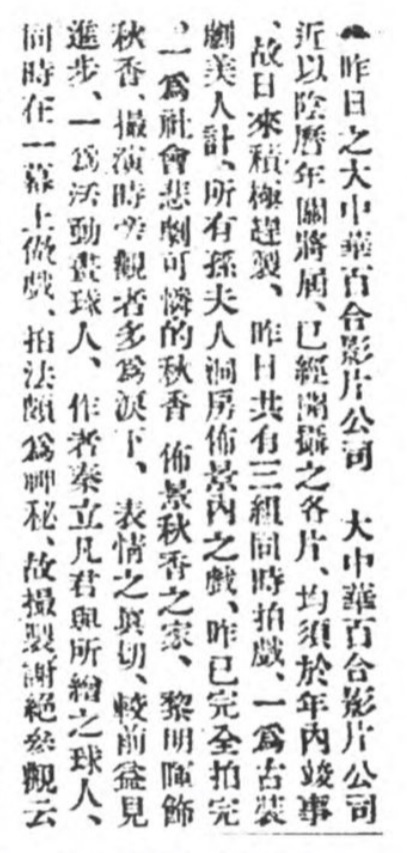 昨日之大中華百合影片公司　大中華百合影片公司
近以陰曆年關將屆、已經開攝之各片、均須於年內竣事
、故日來積極趕製、昨日共有三組同時拍戲、一爲古裝
劇美人計、所有孫夫人洞房佈景內之戲、昨已完全拍完
、一爲社會悲劇可憐的秋香　佈景秋香之家、黎明暉飾
秋香、攝演時旁觀者多爲淚下、表情之眞切、較前益見
進步、一爲活動畫球人、作者秦立凡君與所繪之球人、
同時在一幕上做戲、拍法頗爲神秘、故攝製謝絕參觀云